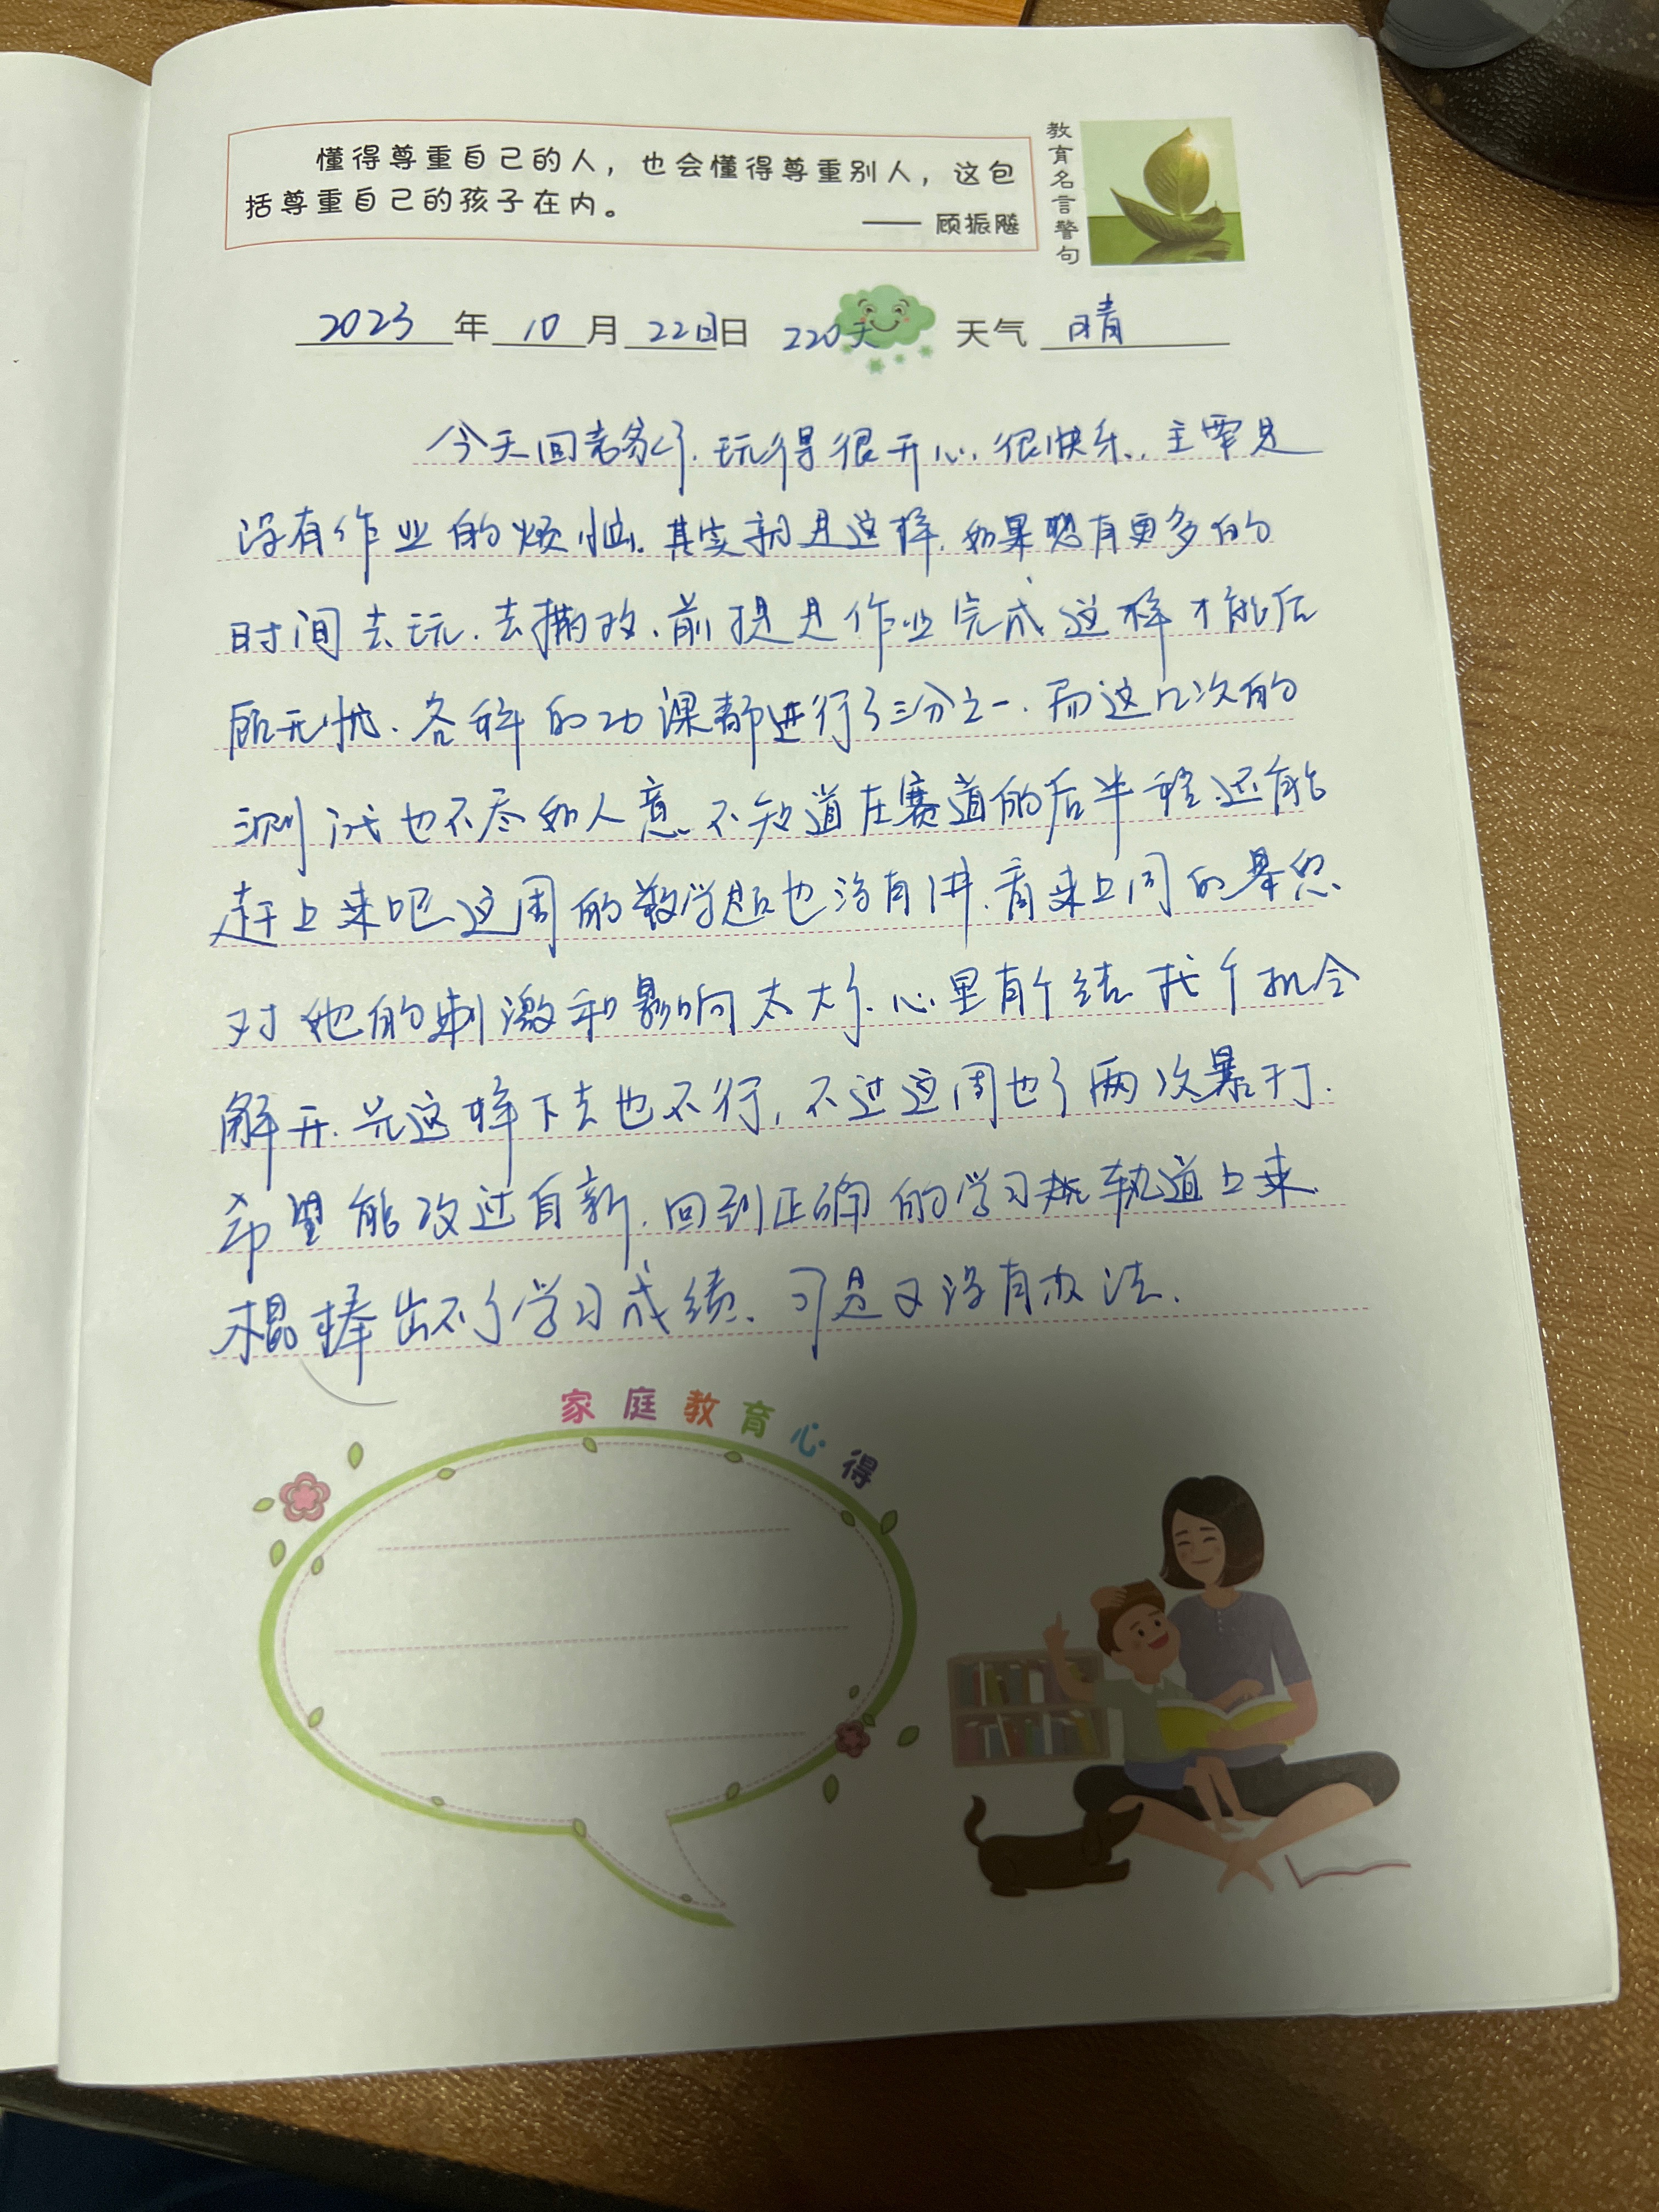 懂得尊重自己的人，也会懂得尊重别人，这包
括尊重自己的孩子在内。
—— 顾振飚
教育名言警句
2023 年 10 月 22日日 220天 天气 晴
今天回老家了.玩得很开心.很快乐.主要是
没有作业的烦恼.其实就是这样.如果想有更多的
时间去玩.去撒欢.前提是作业完成这样才能后
顾无忧.各科的功课都进行了三分之一.而这几次的
测试也不尽如人意.不知道在赛道的后半程还能
赶上来吧.这周的数学题也没有讲.看来上周的
对她的刺激和影响太大了.心里有个结.找个机会
解开.光这样下去也不行,不过这周也了两次暴打.
希望能改过自新.回到正确的学习轨道上来.
棍棒出不了学习成绩.可是又没有办法.
家庭教育心得